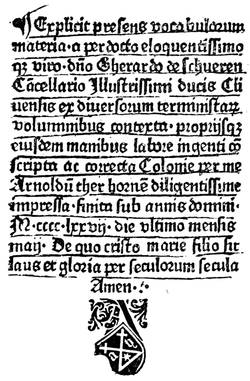 ¶Explicit presens vocabulorum
materia · a perdocto eloquentissimo
qʒ viro · dño Gherardo de schueren
Cācellario Illustrissimi ducis Cli
uensis ex diuersorum terministarꝝ
voluminibus contexta · proprijsqʒ
eiusdem manibus labore ingenti cō
scripta ac correcta Colonie per me
Arnoldū ther hornē diligentissime
impressa · finita sub annis domini ·
M · cccc · lxxvij · die vltimo mensis
maij · De quo cristo marie filio sit
laus et gloria per seculorum secula
Amen · : ·